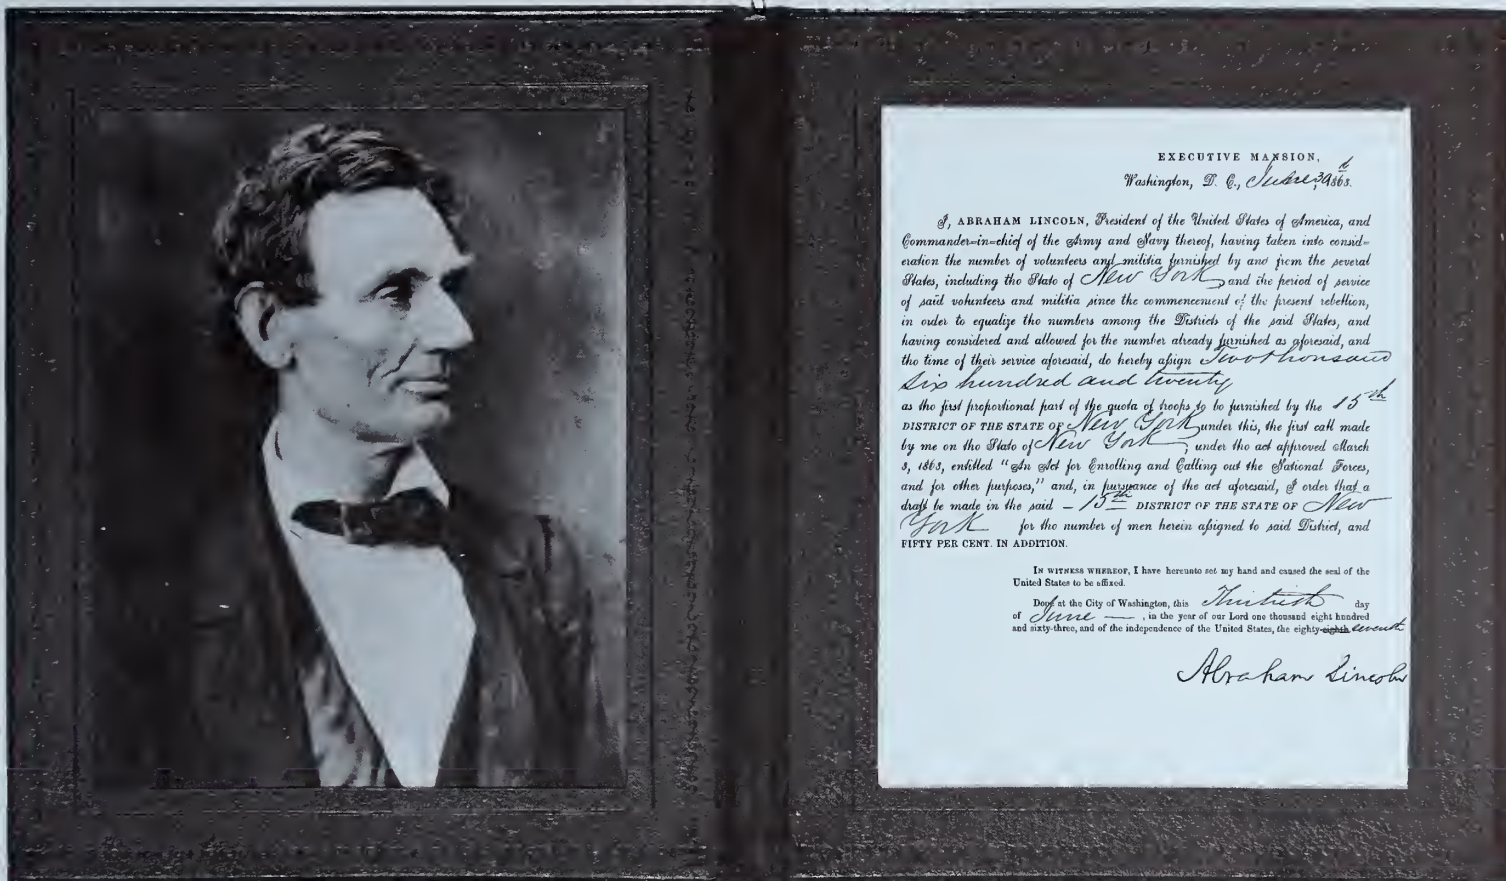 EXECUTIVE MANSION,
Washington, D. C., June 30th 1863.
I, ABRAHAM LINCOLN, President of the United States of America, and
Commander-in-chief of the Army and Navy thereof, having taken into consid-
eration the number of volunteers and militia furnished by and from the several
States, including the State of New York, and the period of service
of said volunteers and militia since the commencement of the present rebellion,
in order to equalize the numbers among the Districts of the said States, and
having considered and allowed for the number already furnished as aforesaid, and
the time of their service aforesaid, do hereby assign Two thousand
six hundred and twenty
as the first proportional part of the quota of troops to be furnished by the 15th
DISTRICT OF THE STATE OF New York under this, the first call made
by me on the State of New York, under the act approved March
3, 1863, entitled "An Act for Enrolling and Calling out the National Forces,
and for other purposes," and, in pursuance of the act aforesaid, I order that a
draft be made in the said - 15th DISTRICT OF THE STATE OF New
York for the number of men herein assigned to said District, and
FIFTY PER CENT. IN ADDITION.
IN WITNESS WHEREOF, I have hereunto set my hand and caused the seal of the
United States to be affixed.
Done at the City of Washington, this Thirtieth day
of June —, in the year of our Lord one thousand eight hundred
and sixty-three, and of the independence of the United States, the eighty-eighth seventh
Abraham Lincoln